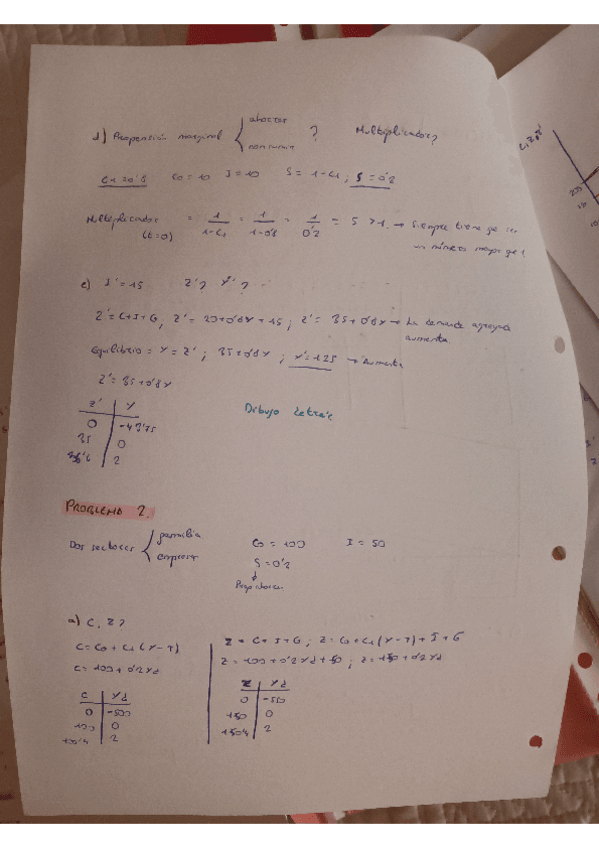 d) Propensión marginal { ahorrar consumir ? Multiplicador?
C1 = 0'8 C0 = 10 I = 10 S = 1-C1; S = 0'2
Multiplicador (t=0) = 1/1-C1 = 1/1-0'8 = 1/0'2 = 5 > 1. → Siempre tiene que ser un número mayor que 1
e) I' = 15 Z'? Y'?
Z' = C+I+G, Z' = 20+0'8Y+15; Z' = 35+0'8Y → La demanda agregada aumenta.
Equilibrio = Y = Z'; 35+0'8Y; Y' = 125 → Aumenta
Z' = 35+0'8Y
Z' Y
0 -43'75
35 0
36'6 2
Dibujo detrás
PROBLEMA 2.
Dos sectores { familia empresa C0 = 100 I = 50
S = 0'2
a) C, Z?
C = C0 + C1 (Y-T)
C = 100 + 0'2Yd
C Yd
0 -500
100 0
100'4 2
Z = C+I+G; Z = C0+C1(Y-T)+I+G
Z = 100+0'2Yd+50; Z = 150+0'2Yd
Z Yd
0
150 0
150'4 2
C, Z, Z'
200
Z'